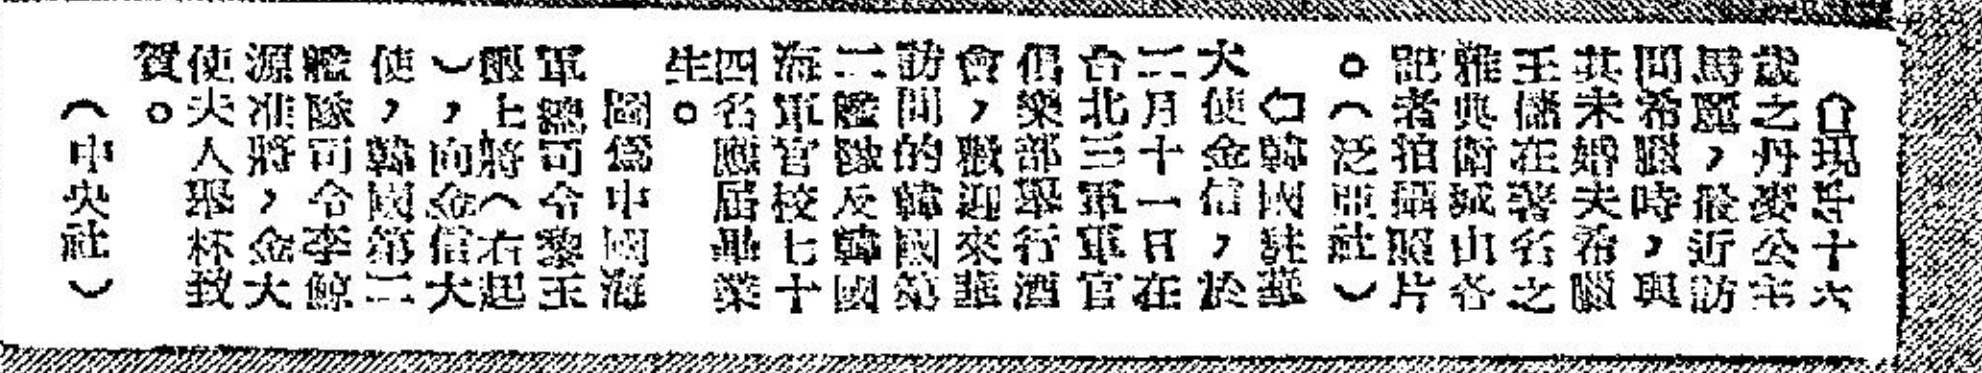 ⇧現年十六
歲之丹麥公主
馬麗，最近訪
問希臘時，與
其未婚夫希臘
王儲在著名之
雅典衛城由各
記者拍攝照片
。（泛亞社）
⇦韓國駐華
大使金信，於
二月十一日在
台北三軍軍官
俱樂部舉行酒
會，歡迎來華
訪問的韓國第
二艦隊及韓國
海軍官校七十
四名應屆畢業
生。
圖爲中國海
軍總司令黎玉
璽上將（右起
），向金信大
使，韓國第二
艦隊司令李鯨
源准將，金大
使夫人舉杯致
賀。
（中央社）